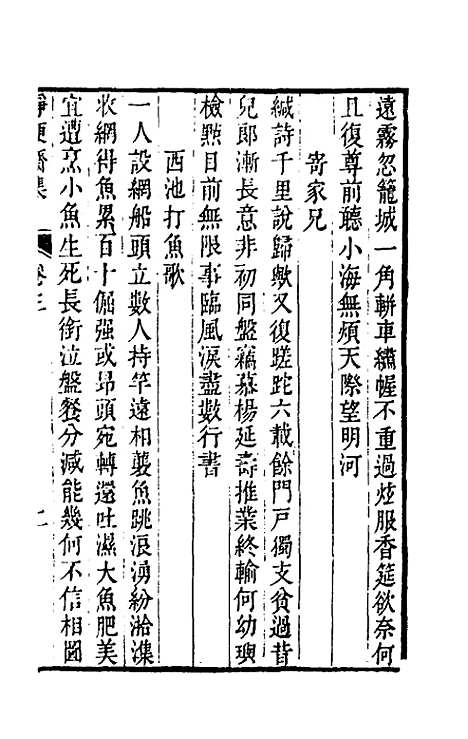 遠霧忽籠城一角軿車繡幄不重過炫服香筵欲奈何
且復尊前聽小海無煩天際望明河
寄家兄
緘詩千里說歸歟又復蹉跎六載餘門戶獨支貧過昔
兒郎漸長意非初同盤藕慕楊延壽推業終輸何幼璵
檢點目前無限事臨風淚盡數行書
西池打魚歌
一人設網船頭立數人持竿遠相襲魚跳浪湧紛湁潗
收網得魚累百十倔强或昂頭宛轉還吐濕大魚肥美
宜遭烹小魚生死長銜泣盤餐分減能幾何不信相圖
齋集
卷三